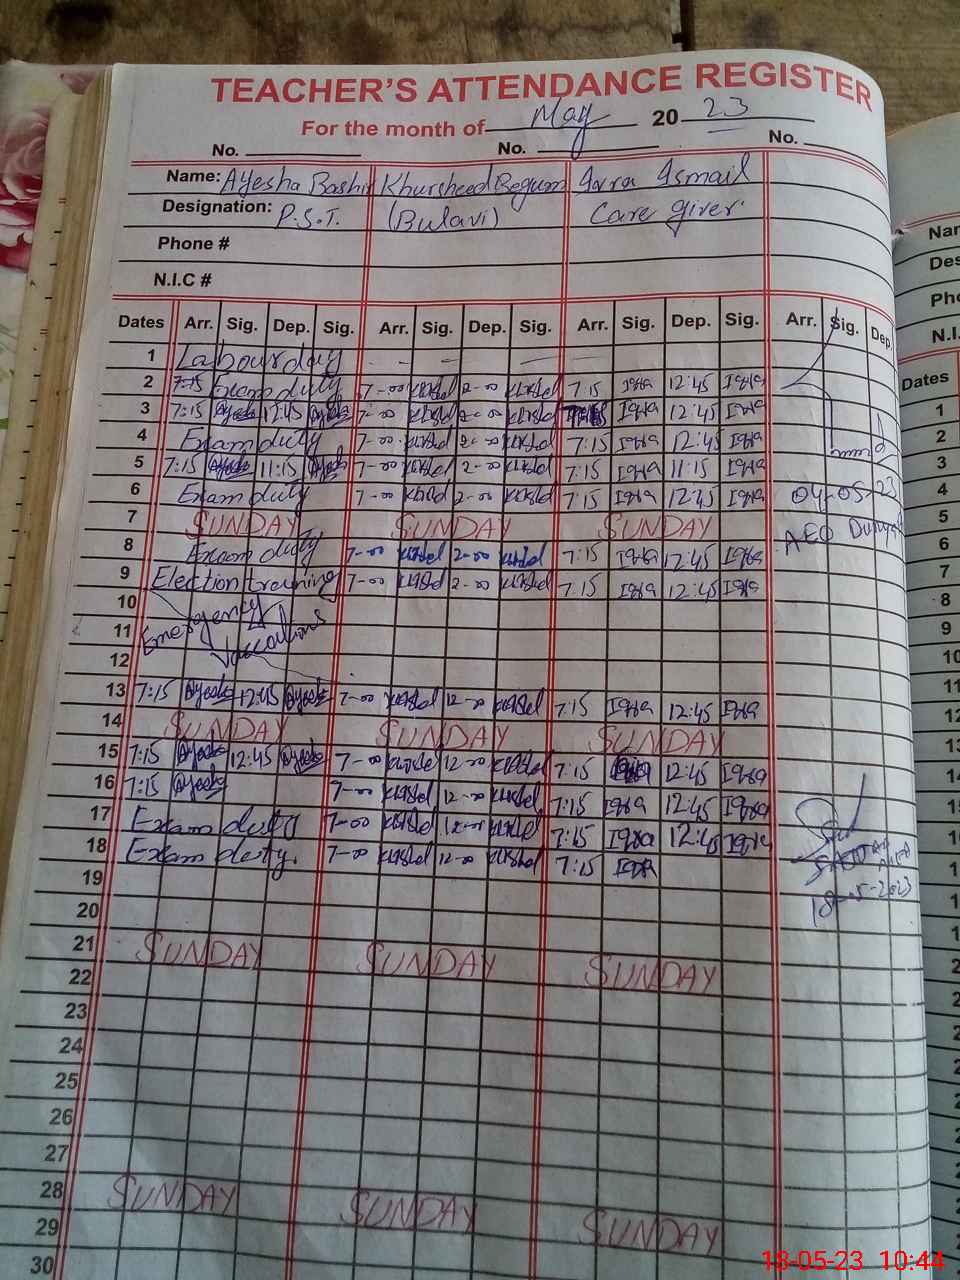 TEACHER'S ATTENDANCE REGISTER
For the month of May 20 23
No. No. No.
Name: Ayesha Bashir Khursheed Begum Iqra Ismail
Designation: P.S.T. (Bulavi) Care giver
Phone #
N.I.C #
Dates Arr. Sig. Dep. Sig. Arr. Sig. Dep. Sig. Arr. Sig. Dep. Sig. Arr. Sig. Dep.
1 Labour day
2 7:15 Exam duty 7-00 2-00 7:15 Iqra 12:45 Iqra
3 7:15 Ayesha 12:45 Ayesha 7-00 2-00 Iqra 12:45 Iqra
4 Exam duty 7-00 2-00 7:15 Iqra 12:45 Iqra
5 7:15 Ayesha 11:15 Ayesha 7-00 2-00 7:15 Iqra 11:15 Iqra
6 Exam duty 7-00 2-00 7:15 Iqra 12:45 Iqra 04-05-23
7 SUNDAY SUNDAY SUNDAY AEO
8 Exam duty 7-00 2-00 7:15 Iqra 12:45 Iqra
9 Election training 7-00 2-00 7:15 Iqra 12:45 Iqra
10 Emergency
11 Vaccations
12
13 7:15 Ayesha 12:45 Ayesha 7-00 12-00 7:15 Iqra 12:45 Iqra
14 SUNDAY SUNDAY SUNDAY
15 7:15 Ayesha 12:45 Ayesha 7-00 12-00 7:15 Iqra 12:45 Iqra
16 7:15 Ayesha 7-00 12-00 7:15 Iqra 12:45 Iqra
17 Exam duty 7-00 12-00 7:15 Iqra 12:45 Iqra
18 Exam duty. 7-00 12-00 7:15 Iqra
19 18-5-2023
20
21 SUNDAY SUNDAY SUNDAY
22
23
24
25
26
27
28 SUNDAY SUNDAY SUNDAY
29
30
Dates
1
2
3
4
5
6
7
8
9
10
11
12
13
18-05-23 10:44